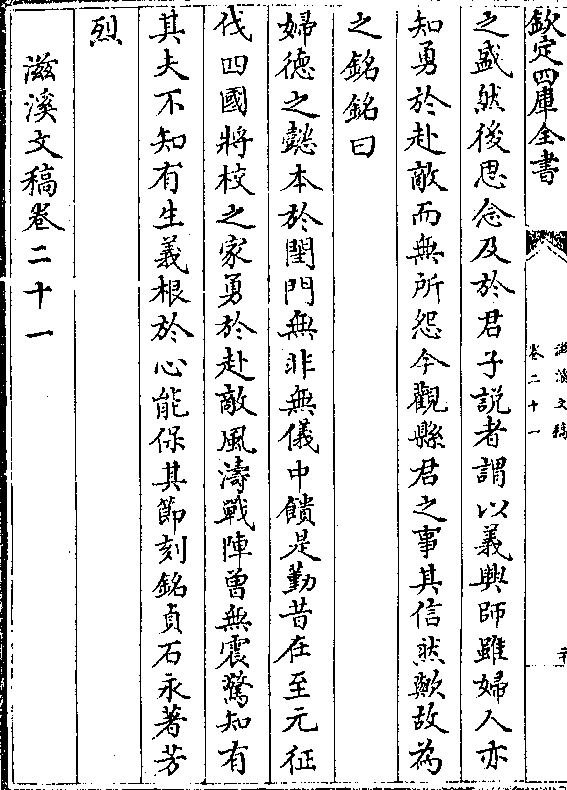 欽定四庫全書
滋溪文稿
卷二十一
之盛然後思念及於君子説者謂以義興師雖婦人亦
知勇於赴敵而無所怨今觀縣君之事其信然歟故為
之銘銘曰
婦德之懿本於閨門無非無儀中饋是勤昔在至元征
伐四國將校之家勇於赴敵風濤戰陣曾無震驚知有
其夫不知有生義根於心能保其節刻銘貞石永著芳
烈
滋溪文稿卷二十一